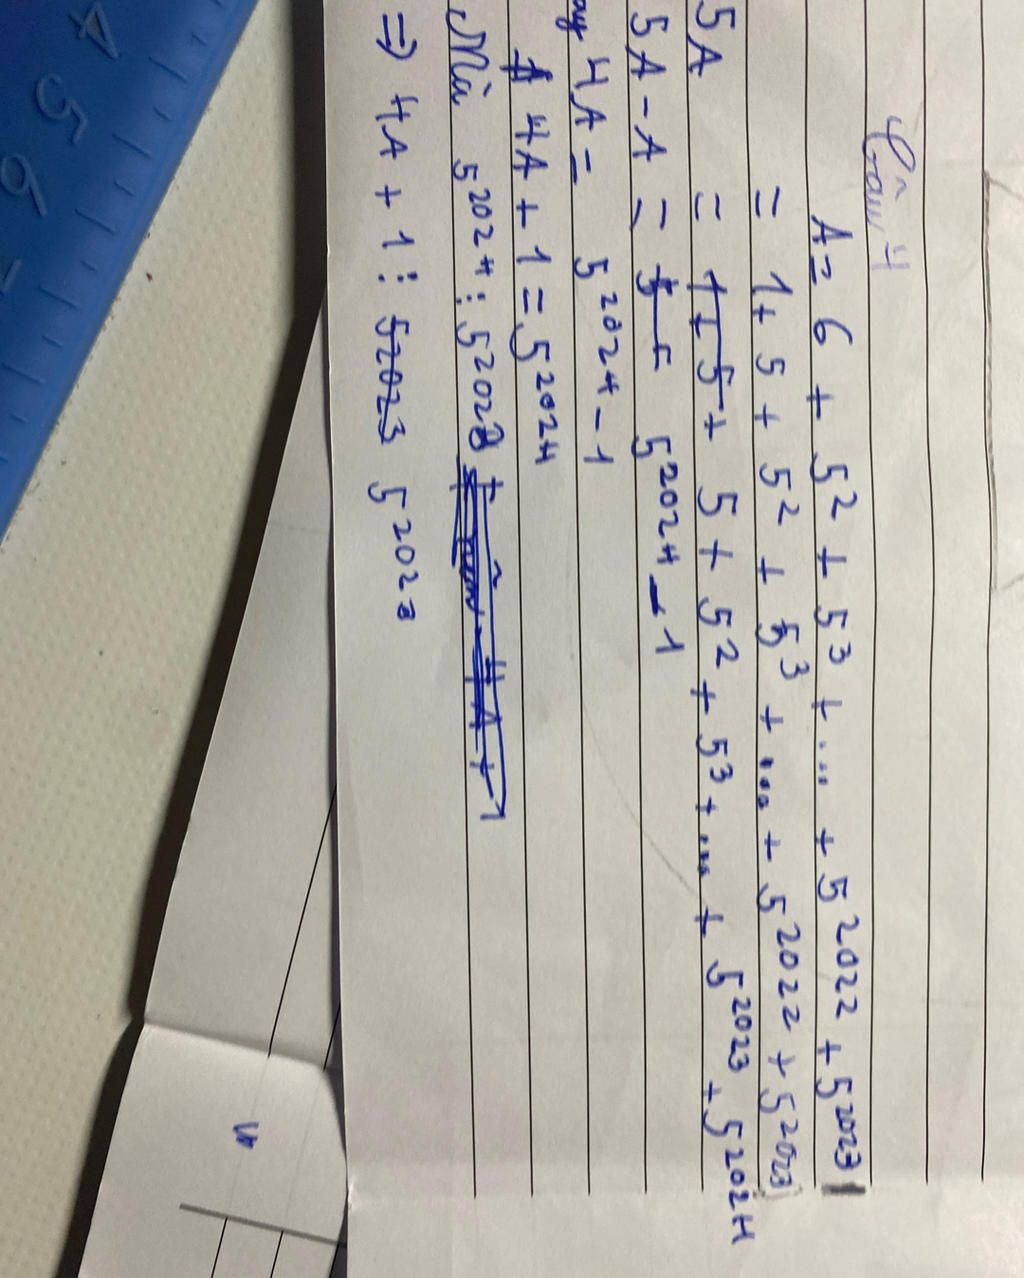 Câu 4
A = 6 + 5² + 5³ + ... + 5²⁰²² + 5²⁰²³
= 1 + 5 + 5² + 5³ + ... + 5²⁰²² + 5²⁰²³
5A = 1 + 5 + 5 + 5² + 5³ + ... + 5²⁰²³ + 5²⁰²⁴
5A - A = 5²⁰²⁴ - 1
ay 4A = 5²⁰²⁴ - 1
4A + 1 = 5²⁰²⁴
Mà 5²⁰²⁴ ⋮ 5²⁰²³
=> 4A + 1 ⋮ 52023 5²⁰²³
4 5 6 7